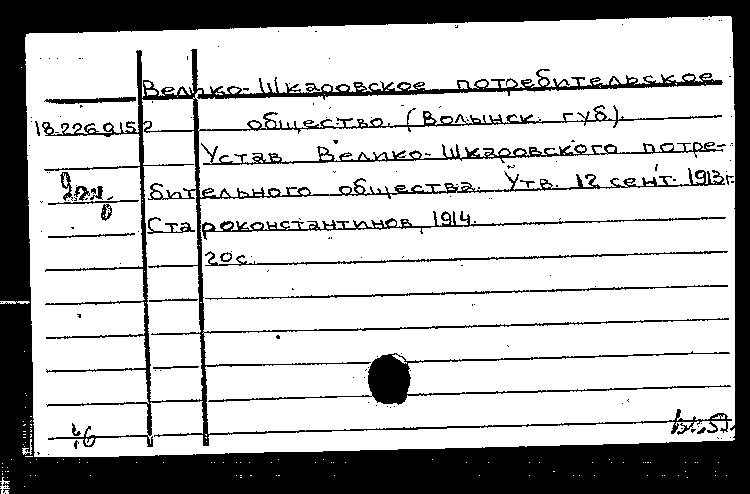 Велико-Шкаровское потребительское
18.226.9.152 общество. (Волынск. губ.).
Устав Велико-Шкаровского потре-
бительного общества. Утв. 12 сент. 1913г.
Староконстантинов, 1914.
20с.